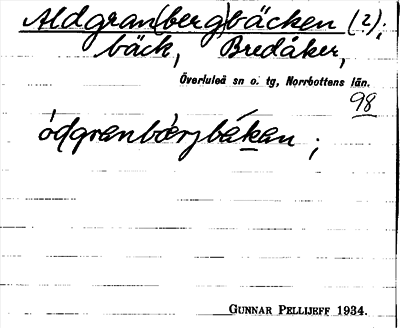 Aldgran(berg)bäcken (2);
bäck, Bredåker,
Överluleå sn o. tg, Norrbottens län.
98
ódgranbærjbákan ;
GUNNAR PELLIJEFF 1934.